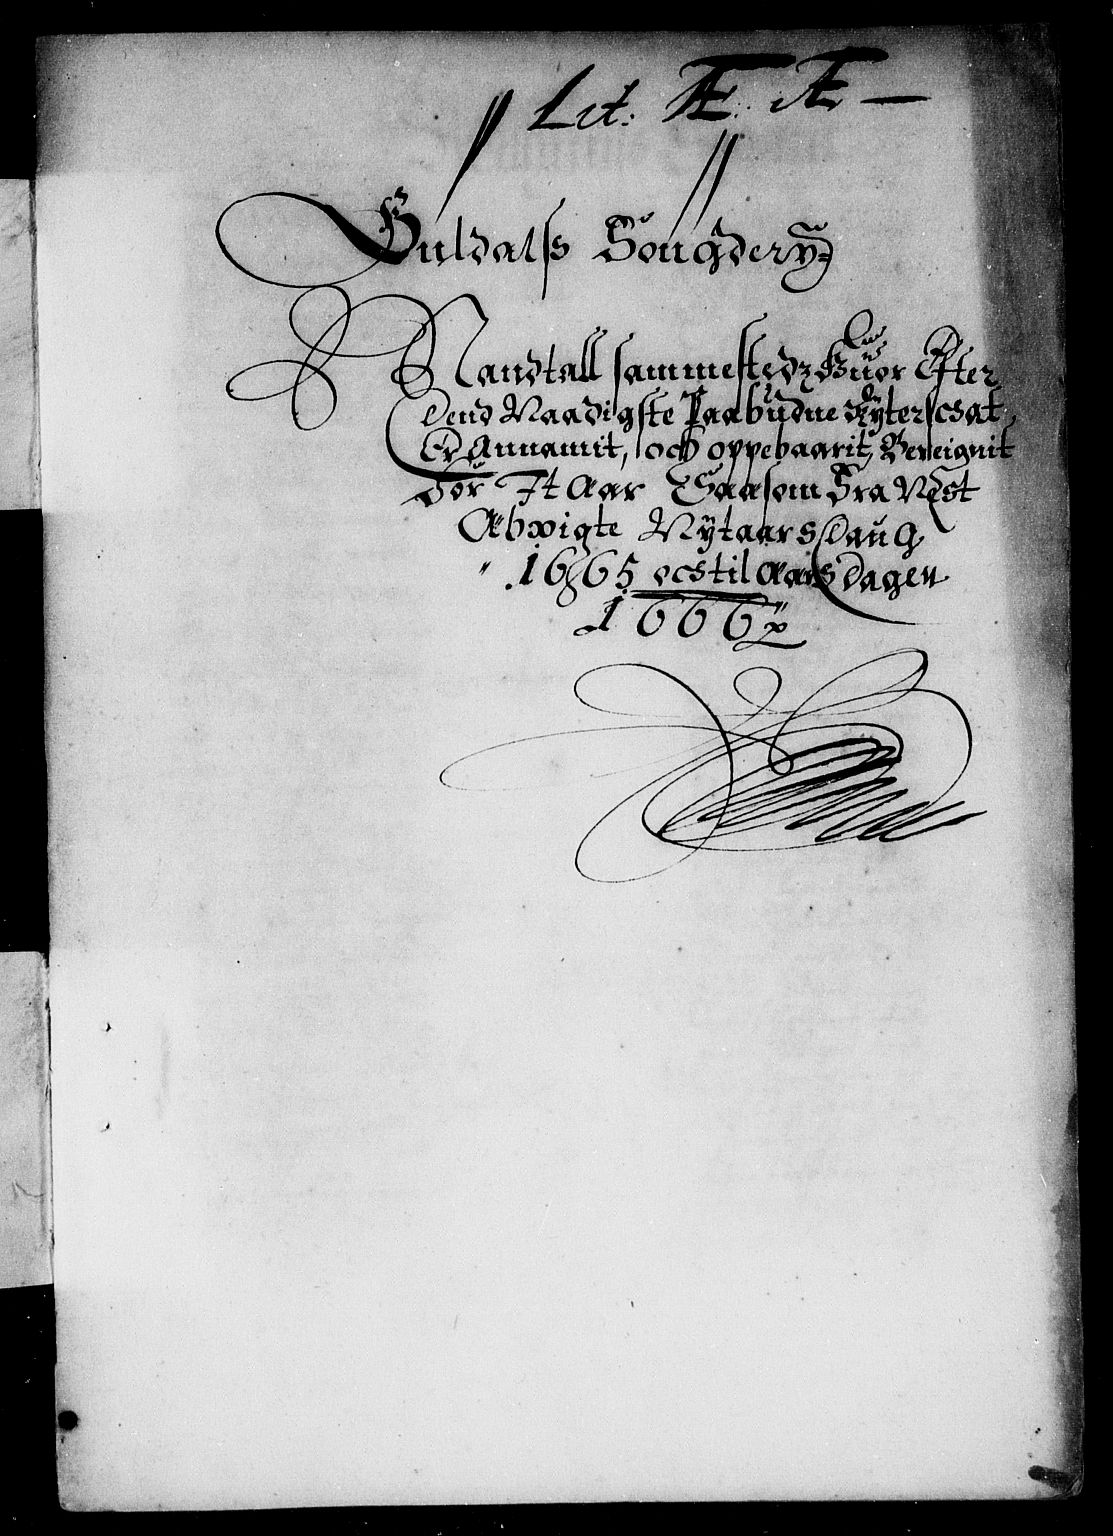 Lit: Æ. Æ —
Guldals Fougderÿ
Mandtall sammestedz Huor Efter
Dend Naadigste Paabudne Rÿter scat
Er Annamit, och oppebaarit, Bereignit
For It Aar Saasom Fra Nest
Abvigte Nÿtaars Daug
1665 oc til Aars dagen
1666